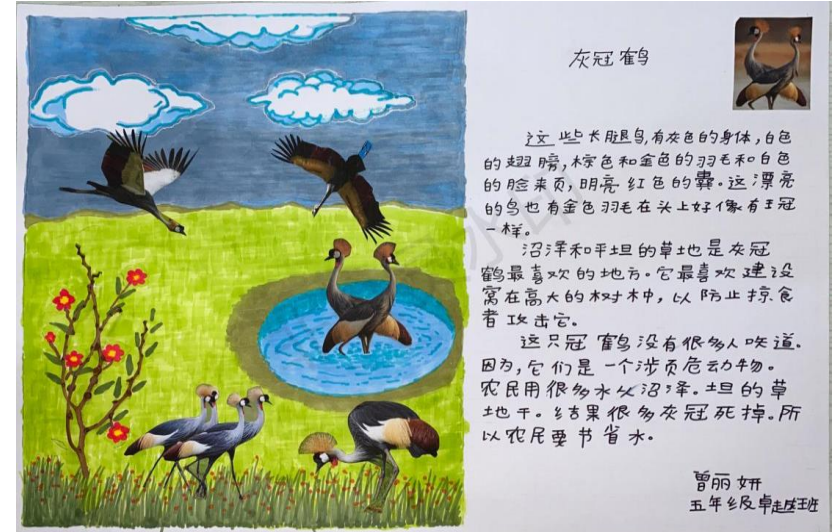 灰冠鹤
这些长腿鸟,有灰色的身体,白色
的翅膀,棕色和金色的羽毛和白色
的脸来页,明亮红色的囊。这漂亮
的鸟也有金色羽毛在头上好像有王冠
一样。
沼泽和平坦的草地也是灰冠
鹤最喜欢的地方。它最喜欢建设
窝在高大的树林中,以防止掠食
者攻击它。
这只冠鹤没有很多人知道。
因为,它们是一个涉页危动物。
农民用很多水从沼泽。坦的草
地干。结果很多灰冠死掉。所
以农民要节省水。
曾丽妍
五年级卓越班